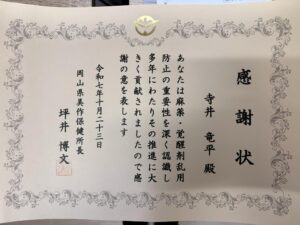 感謝状
寺井 竜平 殿
あなたは麻薬・覚醒剤乱用
防止の重要性を深く認識し
多年にわたりその推進に大
きく貢献されましたので感
謝の意を表します
令和七年十月二十三日
岡山県美作保健所長
坪井 博文